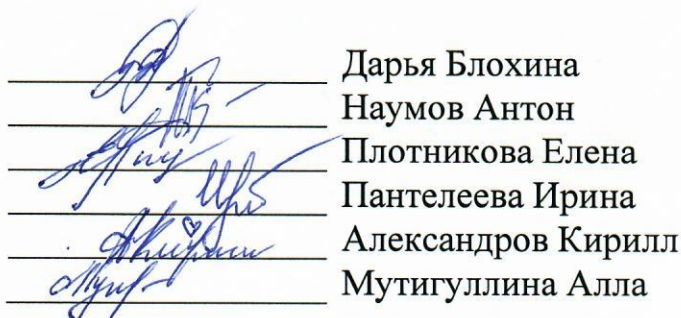 Дарья Блохина
Наумов Антон
Плотникова Елена
Пантелеева Ирина
Александров Кирилл
Мутигуллина Алла